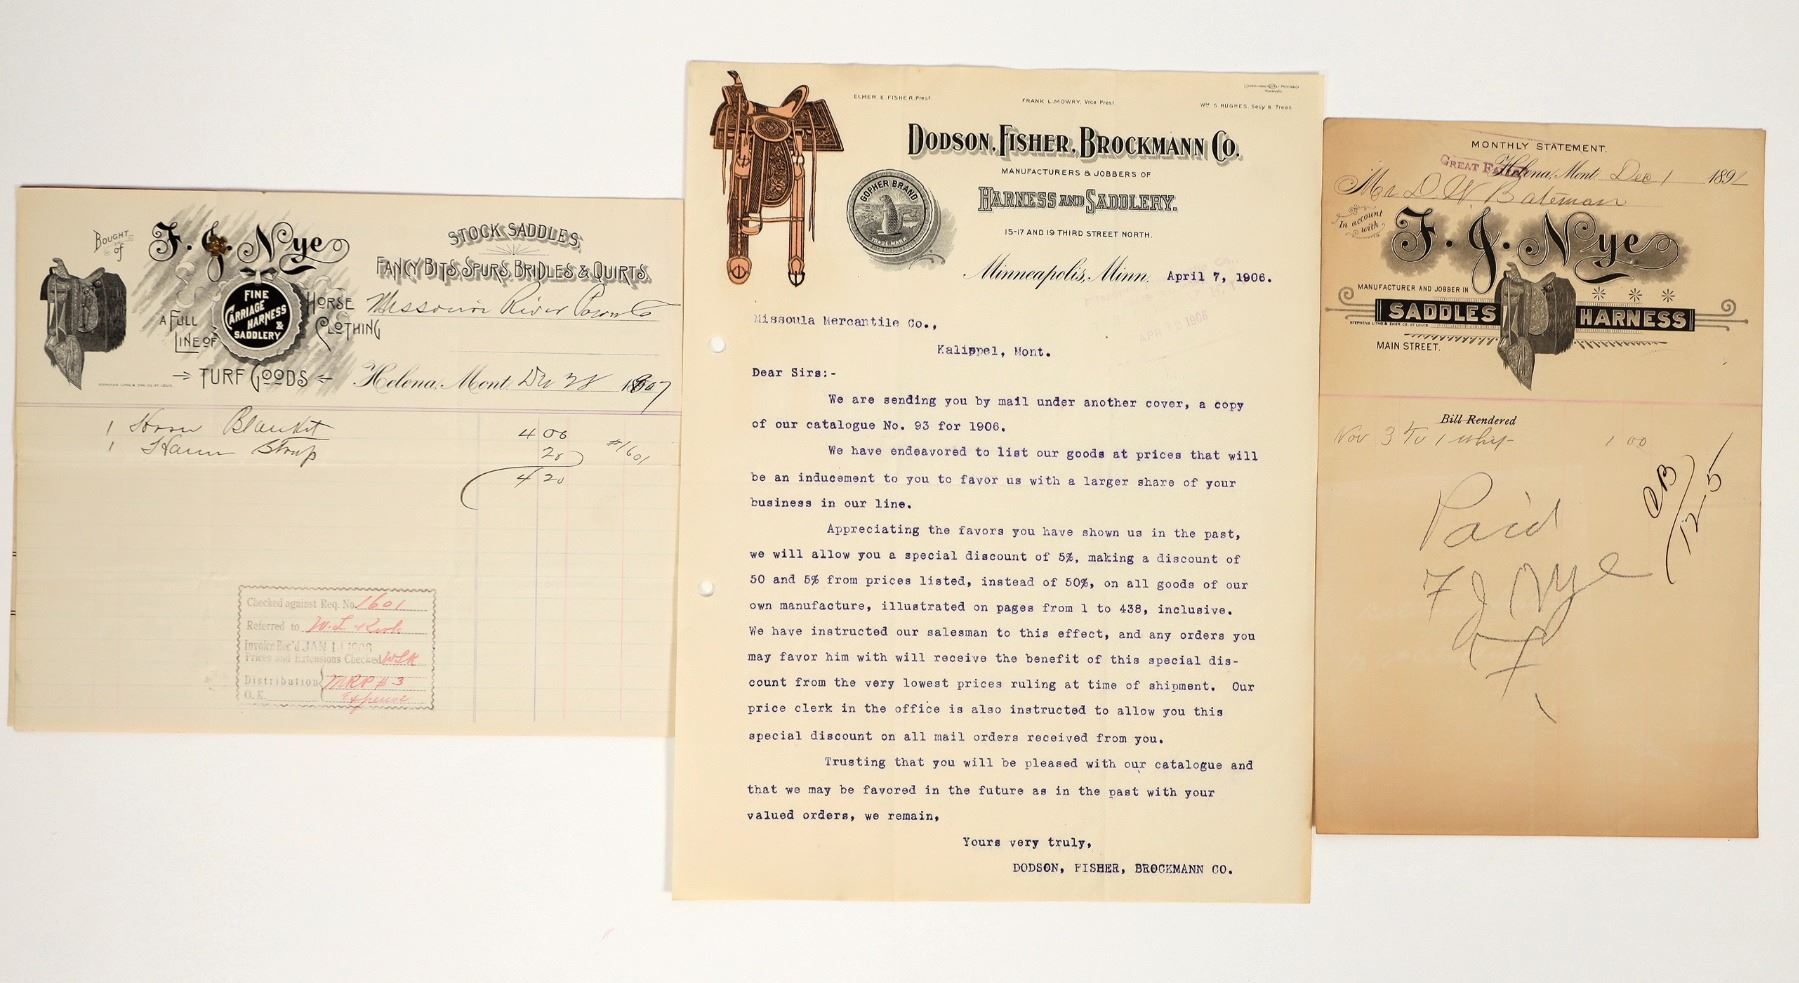 BOUGHT of
F. J. Nye
A FULL LINE OF
FINE CARRIAGE HARNESS & SADDLERY
HORSE CLOTHING
TURF GOODS
STOCK SADDLES,
FANCY BITS, SPURS, BRIDLES & QUIRTS,
Missouri River Power Co
Helena, Mont. Dec 28 1907
1 Horse Blanket 4 00
1 Hame Strap 20 #1601
4 20
Checked against Req. No. 1601
Referred to
Invoice Rec'd JAN 1908
Prices and Extensions Checked WLK
Distribution MRP #3
O.K. Expense
ELMER E. FISHER, Prest.
FRANK L. MOWRY, Vice Prest.
Wm. S. HUGHES, Secy & Treas.
DODSON, FISHER, BROCKMANN CO.
MANUFACTURERS & JOBBERS OF
HARNESS AND SADDLERY.
GOPHER BRAND
TRADE MARK
15-17 AND 19 THIRD STREET NORTH.
Minneapolis, Minn. April 7, 1906.
APR 1906
Missoula Mercantile Co.,
Kalippel, Mont.
Dear Sirs:-
We are sending you by mail under another cover, a copy
of our catalogue No. 93 for 1906.
We have endeavored to list our goods at prices that will
be an inducement to you to favor us with a larger share of your
business in our line.
Appreciating the favors you have shown us in the past,
we will allow you a special discount of 5%, making a discount of
50 and 5% from prices listed, instead of 50%, on all goods of our
own manufacture, illustrated on pages from 1 to 438, inclusive.
We have instructed our salesman to this effect, and any orders you
may favor him with will receive the benefit of this special dis-
count from the very lowest prices ruling at time of shipment. Our
price clerk in the office is also instructed to allow you this
special discount on all mail orders received from you.
Trusting that you will be pleased with our catalogue and
that we may be favored in the future as in the past with your
valued orders, we remain,
Yours very truly,
DODSON, FISHER, BROCKMANN CO.
MONTHLY STATEMENT.
GREAT FALLS
Helena, Mont. Dec 1 189
Mr D. W. Bateman
In account with
F. J. Nye
MANUFACTURER AND JOBBER IN
SADDLES HARNESS
MAIN STREET.
Bill Rendered
Nov 3 To 1 whip 1 00
Paid
F J Nye
12-5